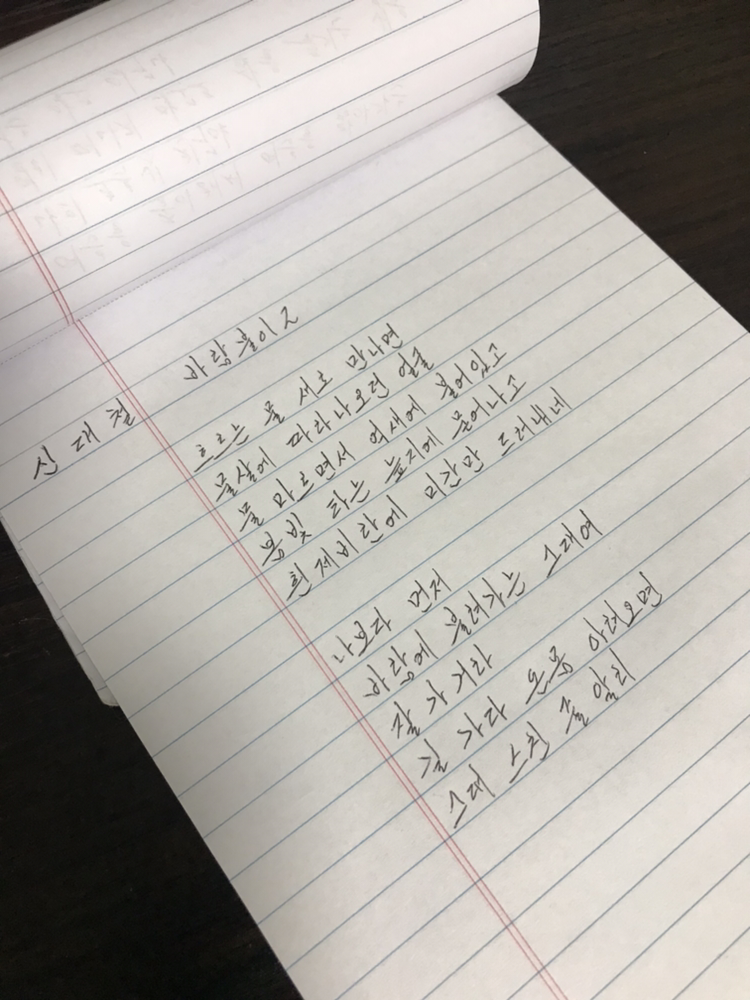 바람불이 2
신대철
흐르는 물 서로 만나면
물살에 따라나오던 얼굴
물 마르면서 억새에 붙어있고
봄빛 타는 늪지에 묻어나고
흰제비란에 미간만 드러내네
나보다 먼저
바람에 불려가는 그대여
잘 가거라
길 가다 온몸 아려오면
그대 스친 줄 알리